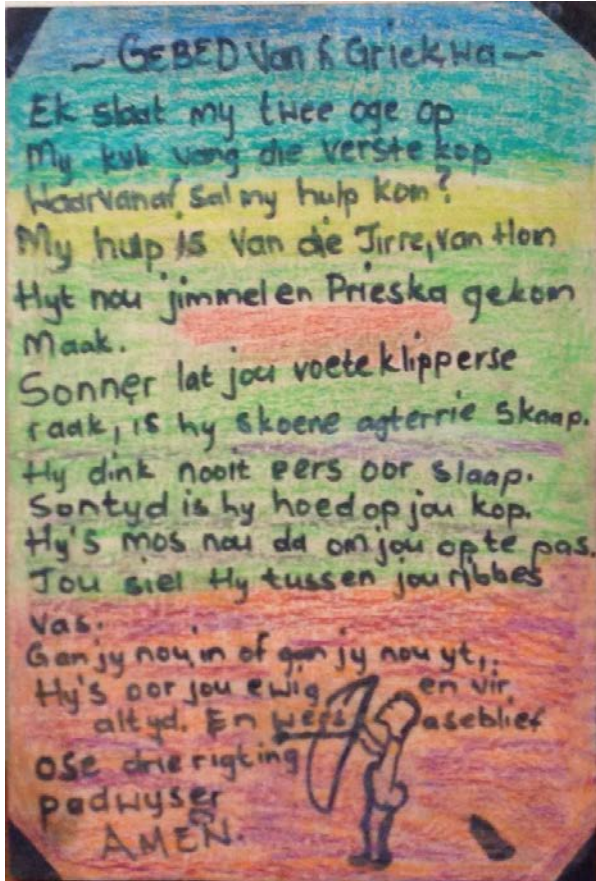 ~ GEBED Van 'n Griekwa ~
Ek slaat my twee oge op
My kyk vang die verste kop
Waarvanaf sal my hulp kom?
My hulp is van die Jirre, van Hom
Hyt nou jimmel en Prieska gekom
Maak.
Sonner lat jou voete klipperse
raak, is hy skoene agterrie skaap.
Hy dink nooit eers oor slaap.
Sontyd is hy hoed op jou kop.
Hy's mos nou da om jou op te pas.
Jou siel Hy tussen jou ribbes
vas.
Gan jy nou, in of gan jy nou yt,
Hy's oor jou ewig en vir
altyd. En wees aseblief
ose drie rigting
padwyser
AMEN.